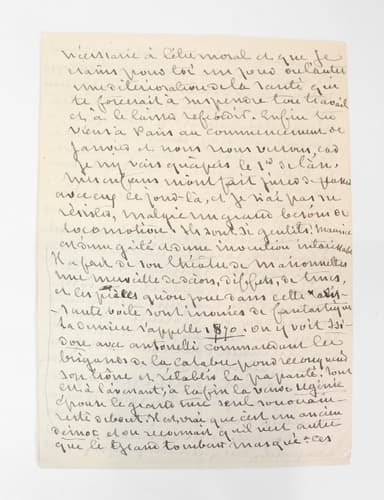 nécessaire à l'être moral et que je
crains pour toi un jour ou l'autre
une détérioration de la santé qui
te forcerait à suspendre ton travail
et à le laisser refroidir. Enfin tu
viens à Paris au commencement de
janvier et nous nous verrons, car
je n'y vais qu'après le 1er de l'an.
Mes enfans m'ont fait jurer de passer
avec eux ce jour-là, et je n'ai pas su
résister, malgré un grand besoin de
locomotion. Ils sont si gentils! Maurice
est d'une gaîté et d'une invention intarissable
Il a fait de son théâtre de marionnettes
une merveille de décors, d'effets, de trucs,
et les pièces qu'on joue dans cette
boite sont inouies de fantastique.
La dernière s'appelle 1870. On y voit Isi-
dore avec Antonelli commandant les
brigands de la Calabre pour reconquérir
son trône et rétablir la papauté. Tout
est à l'avenant; à la fin la veuve Ugénie
épouse le grand turc seul souverain
resté debout. Il est vrai que c'est un ancien
démoc et on reconnait qu'il n'est autre
que le Grand tombeur masqué. Ces